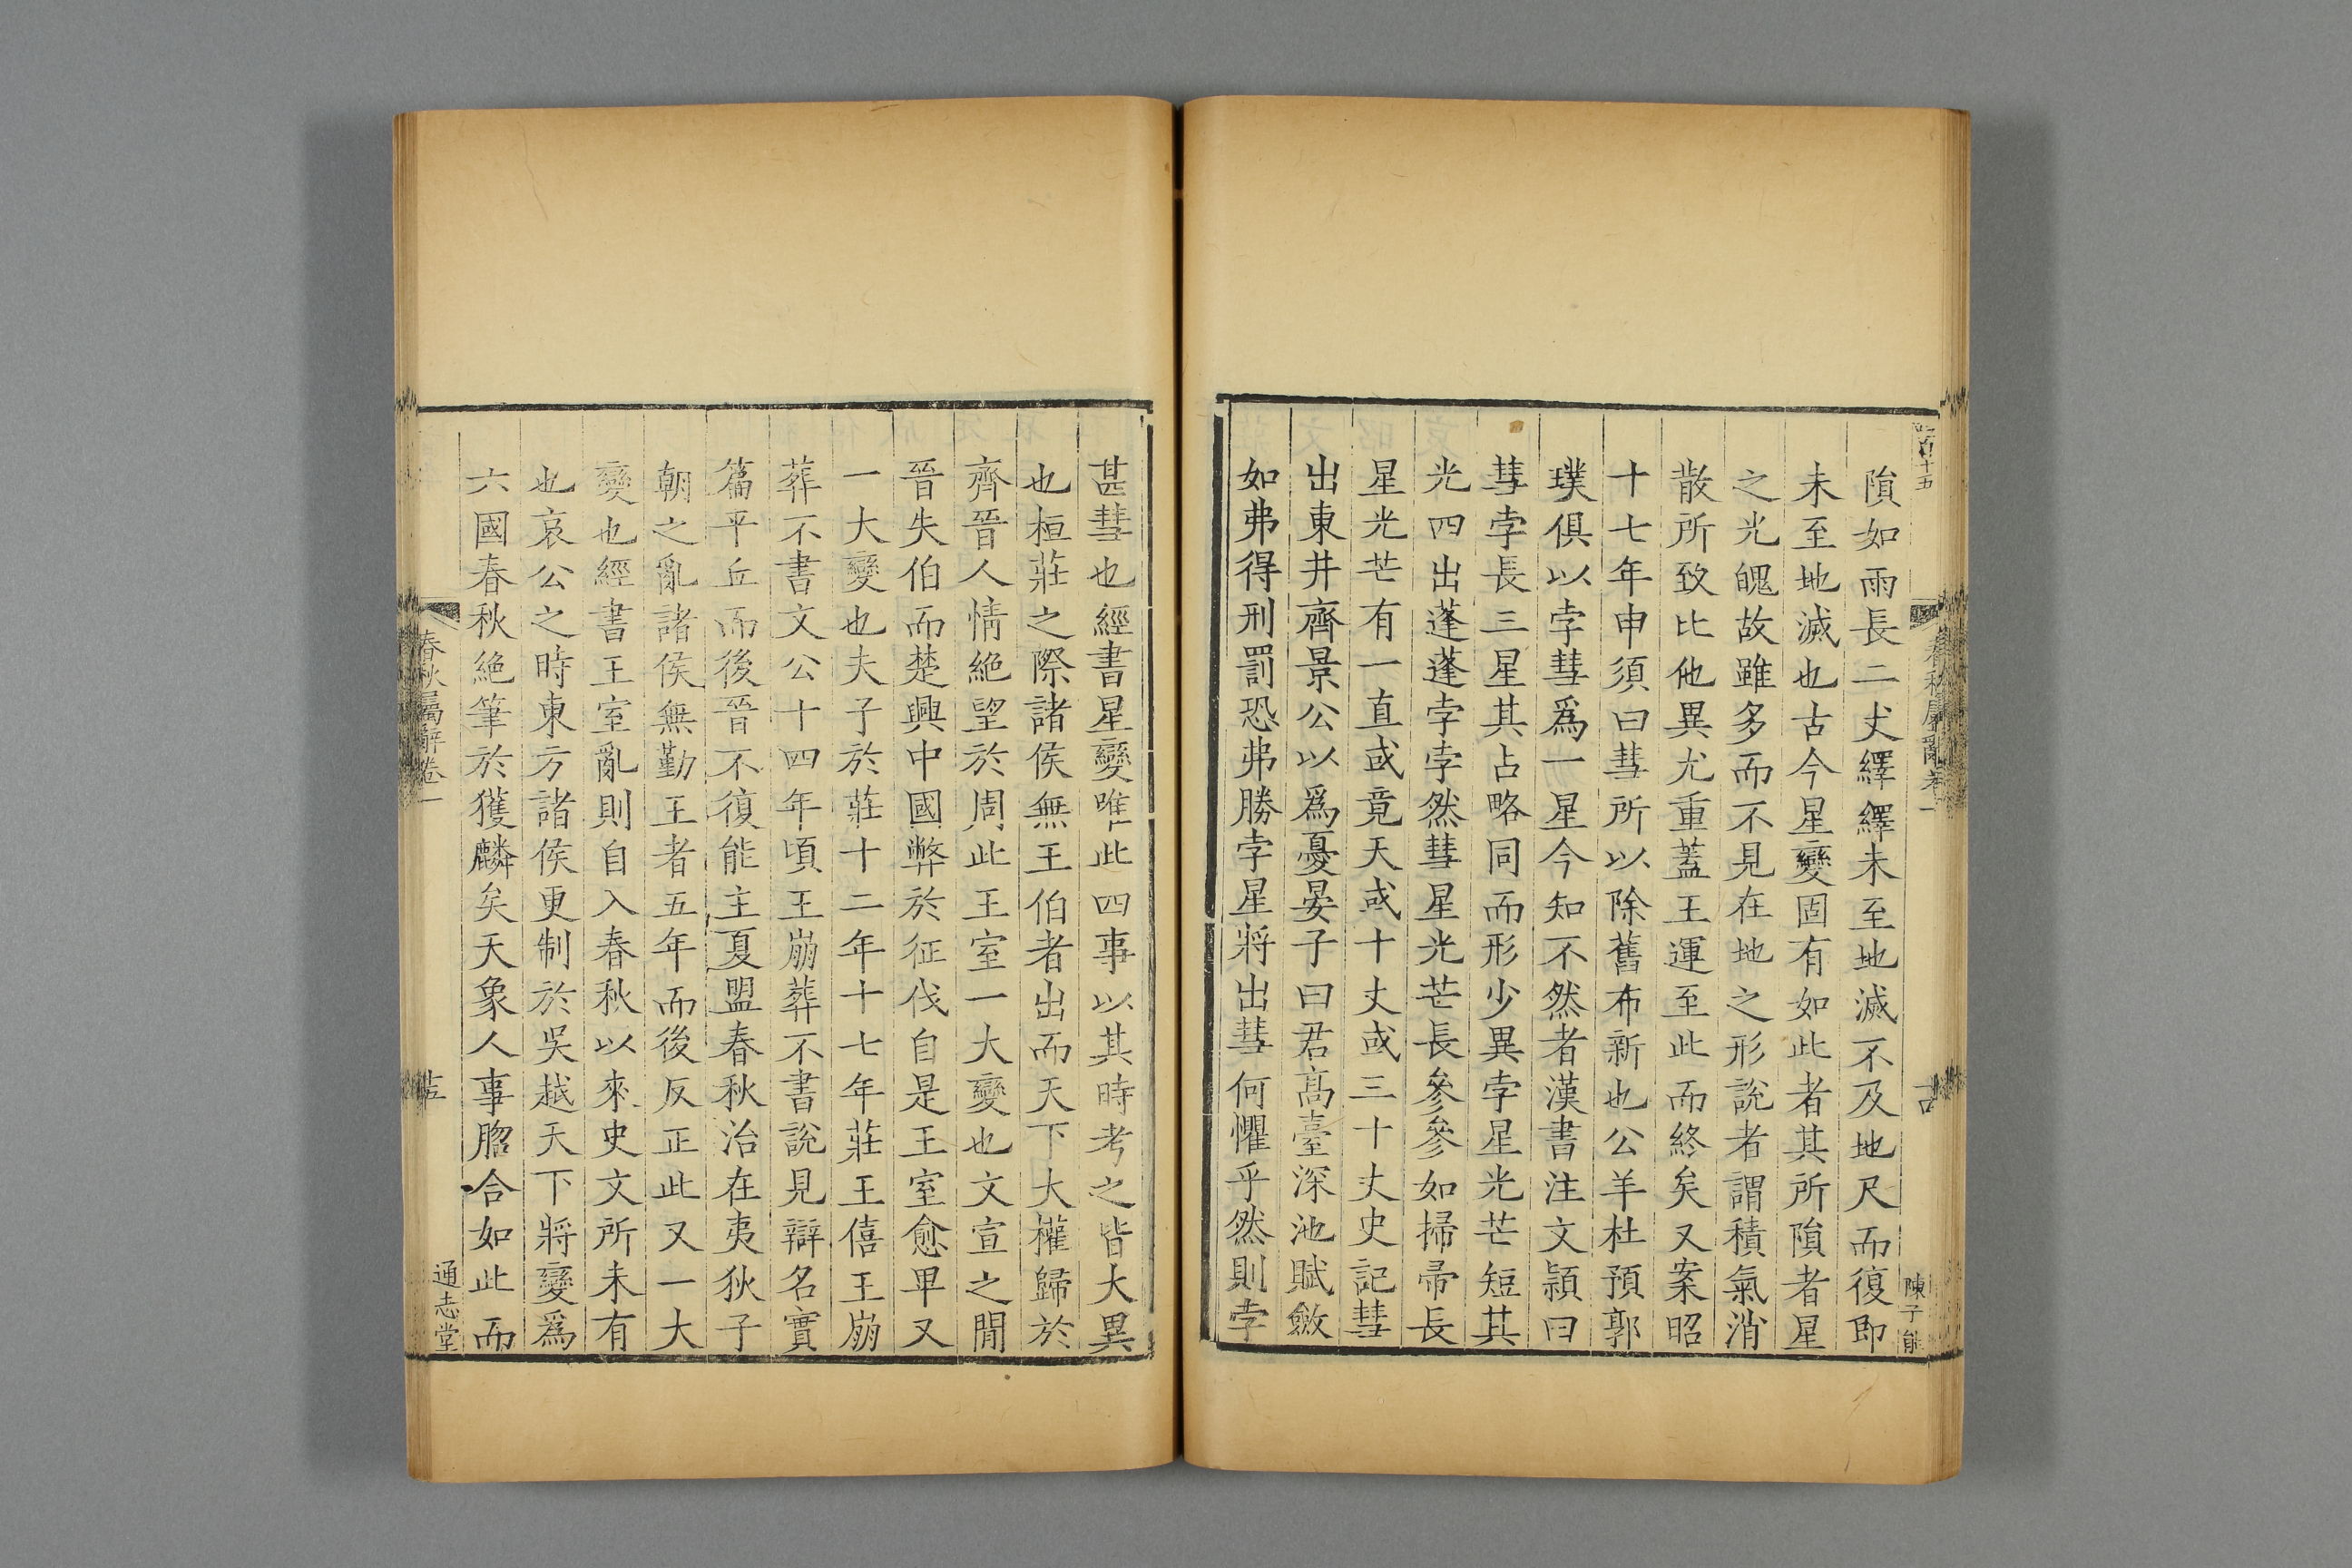 隕如雨長二丈繹繹未至地滅不及地尺而復即
未至地滅也古今星變固有如此者其所隕者星
之光魄故雖多而不見在地之形說者謂積氣消
散所致比他異尤重蓋王運至此而終矣又案昭
十七年申須曰彗所以除舊布新也公羊杜預郭
璞俱以孛彗爲一星今知不然者漢書注文穎曰
彗孛長三星其占略同而形少異孛星光芒短其
光四出蓬蓬孛孛然彗星光芒長參參如掃帚長
星光芒有一直或竟天或十丈或三十丈史記彗
出東井齊景公以爲憂晏子曰君高臺深池賦斂
如弗得刑罰恐弗勝孛星將出彗何懼乎然則孛
陳子能
甚彗也經書星變唯此四事以其時考之皆大異
也桓莊之際諸侯無王伯者出而天下大權歸於
齊晉人情絶望於周此王室一大變也文宣之閒
晉失伯而楚興中國弊於征伐自是王室愈畢又
一大變也夫子於莊十二年十七年莊王僖王崩
葬不書文公十四年頃王崩葬不書說見辯名實
篇平丘而後晉不復能主夏盟春秋治在夷狄子
朝之亂諸侯無勤王者五年而後反正此又一大
變也經書王室亂則自入春秋以來史文所未有
也哀公之時東方諸侯更制於吳越天下將變爲
六國春秋絶筆於獲麟矣天象人事脗合如此而
春秋屬辭卷一
通志堂